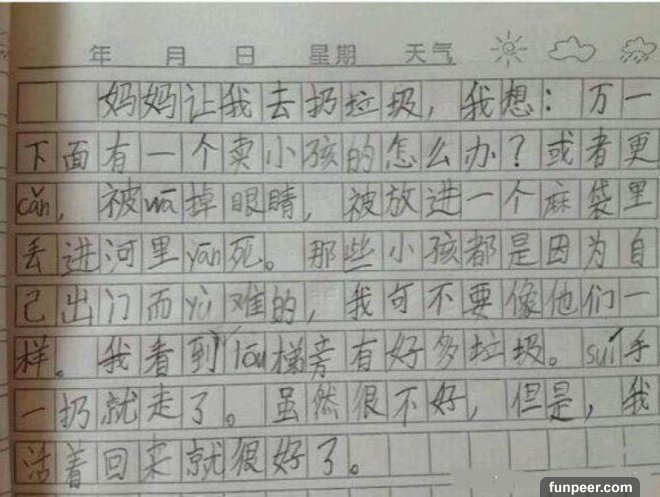 年 月 日 星期 天气
妈妈让我去扔垃圾，我想：万一
下面有一个卖小孩的怎么办？或者更
cǎn，被wā掉眼睛，被放进一个麻袋里
丢进河里yān死。那些小孩都是因为自
己出门而yù难的，我可不要像他们一
样。我看到lóu梯旁有好多垃圾。suí手
一扔就走了。虽然很不好，但是，我
活着回来就很好了。
funpeer.com